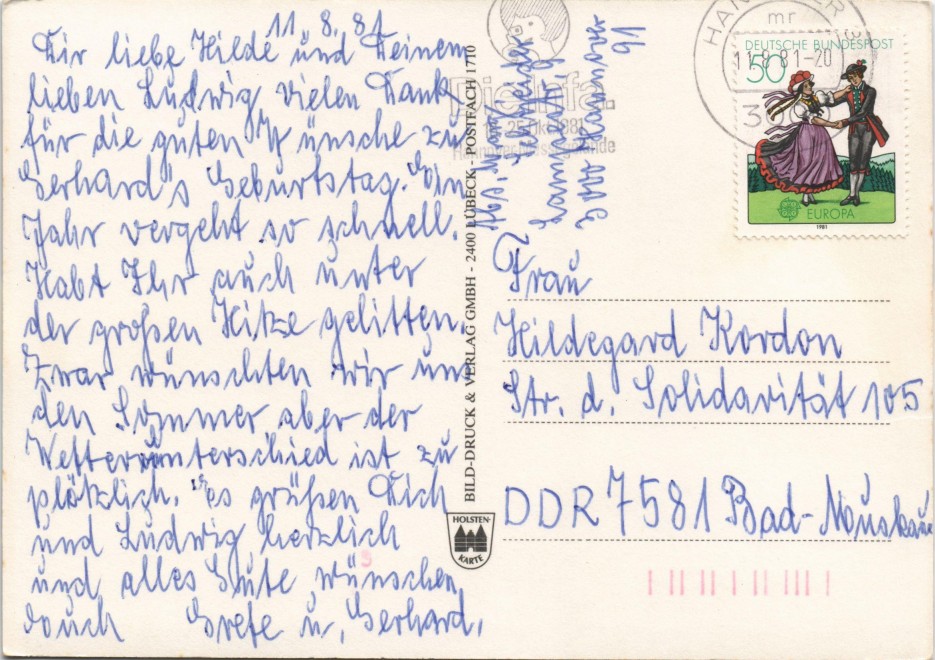 11.8.81
Dir liebe Hilde und Deinem
lieben Ludwig vielen Dank
für die guten Wünsche zu
Gerhard's Geburtstag. Ein
Jahr vergeht so schnell.
Habt Ihr auch unter
der großen Hitze gelitten.
Zwar wünschten wir uns
den Sommer aber der
Wetterunterschied ist zu
plötzlich. Es grüßen Dich
und Ludwig herzlich
und alles Gute wünschen
Euch Grete u. Gerhard.
BILD-DRUCK & VERLAG GMBH - 2400 LÜBECK - POSTFACH 1710
HOLSTEN-
KARTE
Schneider
3000 Hannover
91
Die Infa.
HANNOVER
mr
11.-8.81-20
3
DEUTSCHE BUNDESPOST
50
EUROPA
1981
Frau
Hildegard Kordon
Str. d. Solidarität 105
DDR 7581 Bad-Muskau